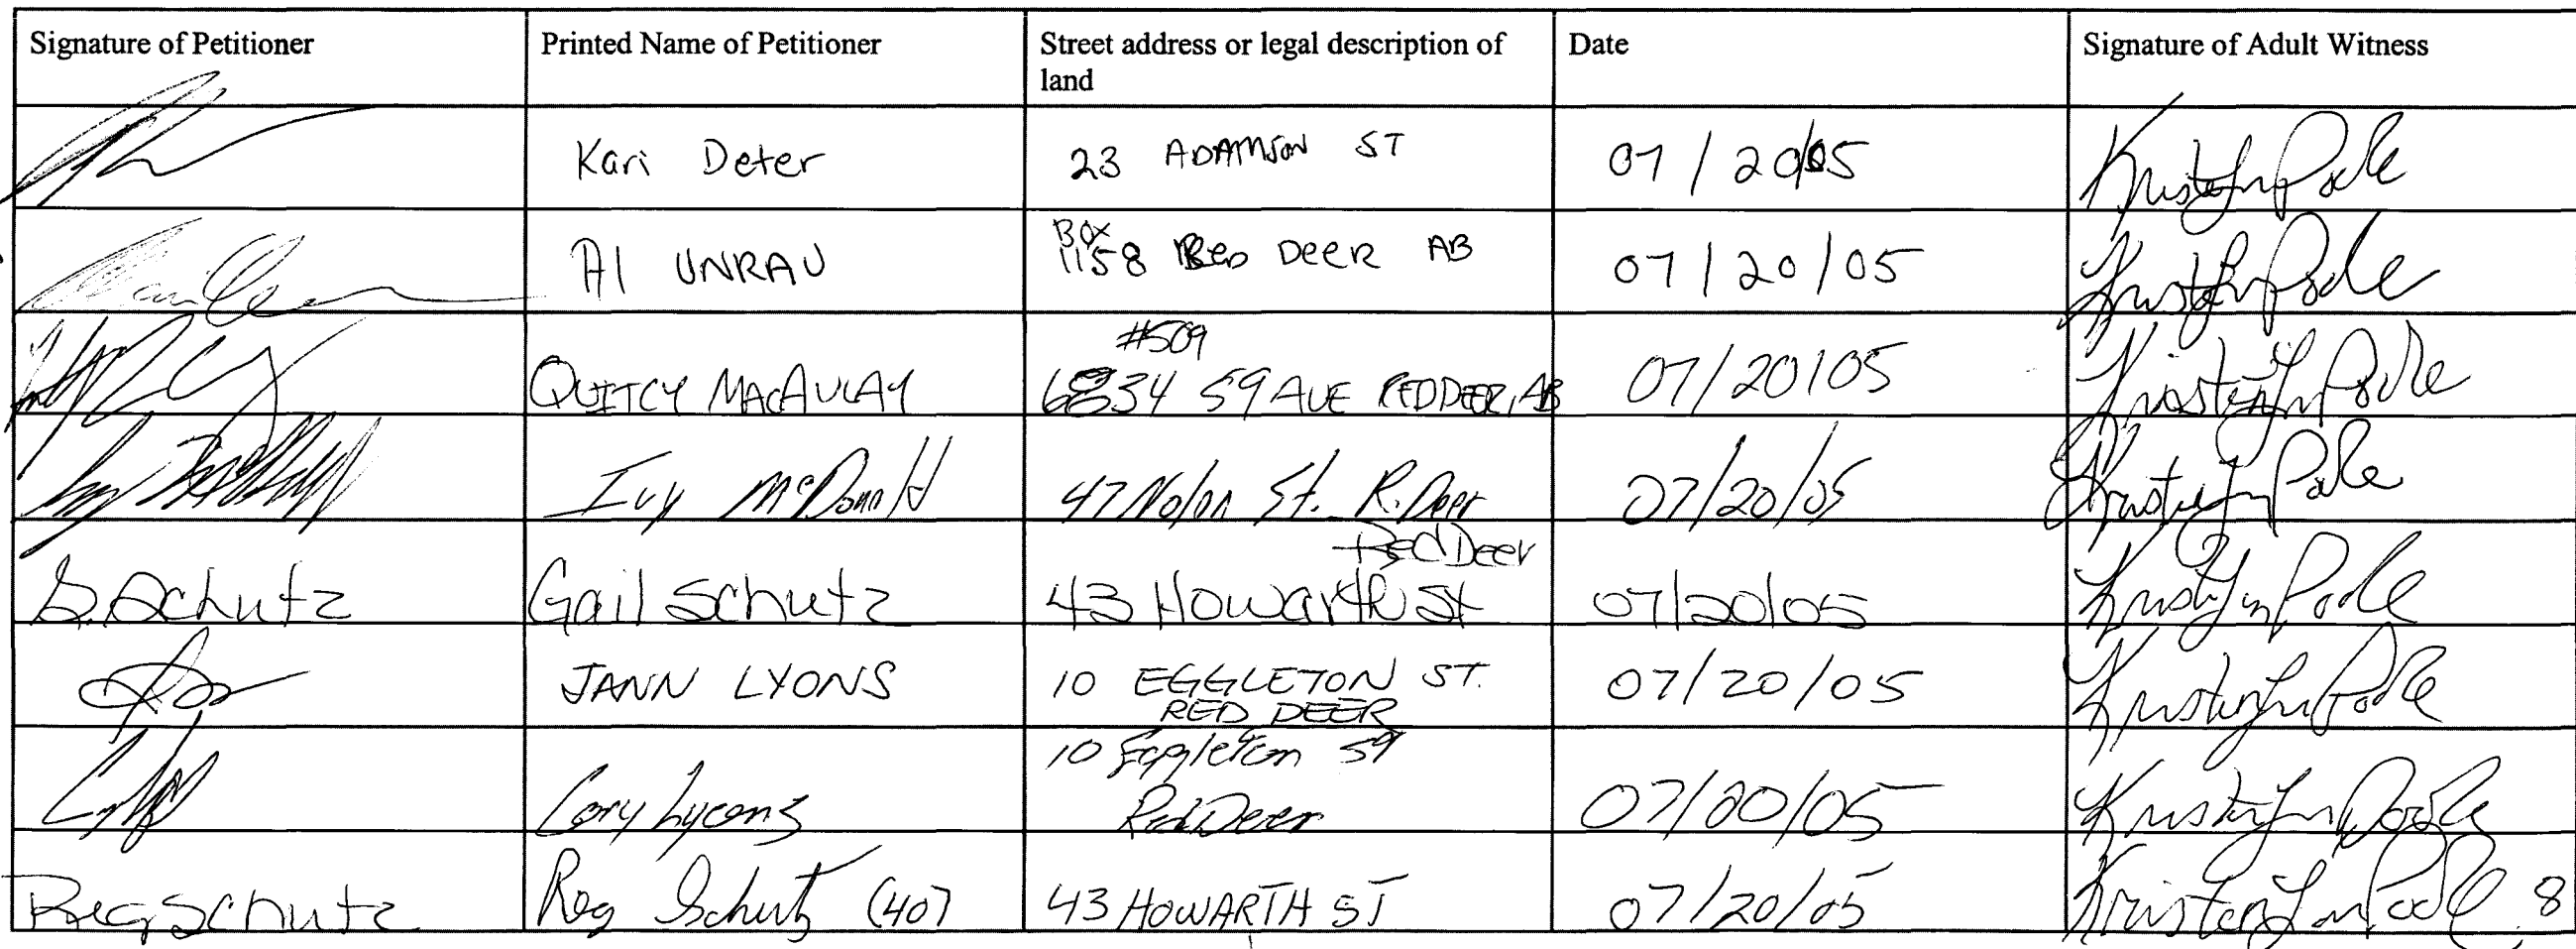 Signature of Petitioner Printed Name of Petitioner Street address or legal description of land Date Signature of Adult Witness
Kari Deter 23 ADAMSON ST 07/20/05 Kristen Lyn Poole
Al UNRAU BOX 1158 RED DEER AB 07/20/05 Kristen Lyn Poole
#509
QUITCY MACAULAY 6834 59 AVE RED DEER, AB 07/20/05 Kristen Lyn Poole
Ivy McDonald 47 Nolan St. R. Deer 07/20/05 Kristen Lyn Poole
Red Deer
G. Schutz Gail Schutz 43 Howarth St 07/20/05 Kristen Lyn Poole
JANN LYONS 10 EGGLETON ST. 07/20/05 Kristen Lyn Poole
RED DEER
10 Eggleton St
Cory Lyons Red Deer 07/20/05 Kristen Lyn Poole
Reg Schutz Reg Schutz (40) 43 HOWARTH ST 07/20/05 Kristen Lyn Poole 8